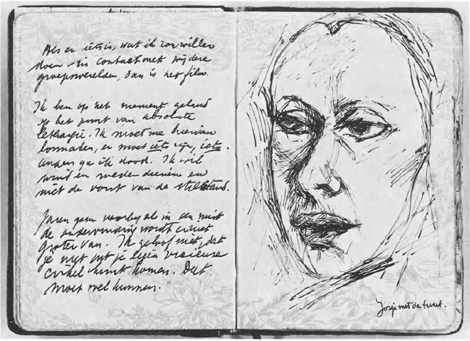 Als er iets is, wat ik zou willen
doen in contact met bredere
groepswerelden, dan is het film.
Ik ben op het moment geland
op het punt van absolute
lethargie. Ik moet me hiervan
losmaken, er moet iets zijn, iets
anders ga ik dood. Ik wil
wind en mede deinen en
niet de vorst van de stilstand.
Jaren gaan voorbij als in een mist
de ondervinding wordt er niet
groter van. Ik geloof niet, dat
je nijt uit je eigen vicieuse
cirkel kunt komen. Dat
moet wel kunnen.
Josje met de